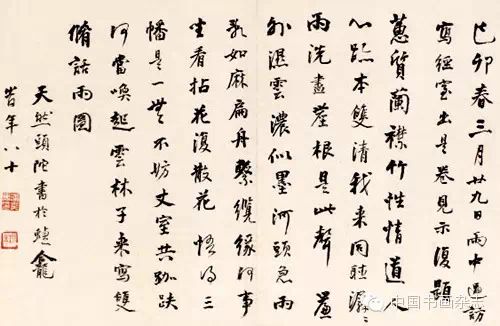 己卯春三月廿九日雨中過訪
寫經室出是卷見示復題
蕙質蘭襟竹性情道人
心跡本雙清我來同聽瀟〻
雨洗盡塵根是此聲 簷
外濕雲濃似墨河頭急雨
亂如麻扁舟繫纜緣何事
坐看拈花復散花 悟得三
幡是一無不妨丈室共跏趺
何當喚起雲林子來寫雙
脩話雨圖
天然頭陀書於龕
旹年八十
中国书画杂志